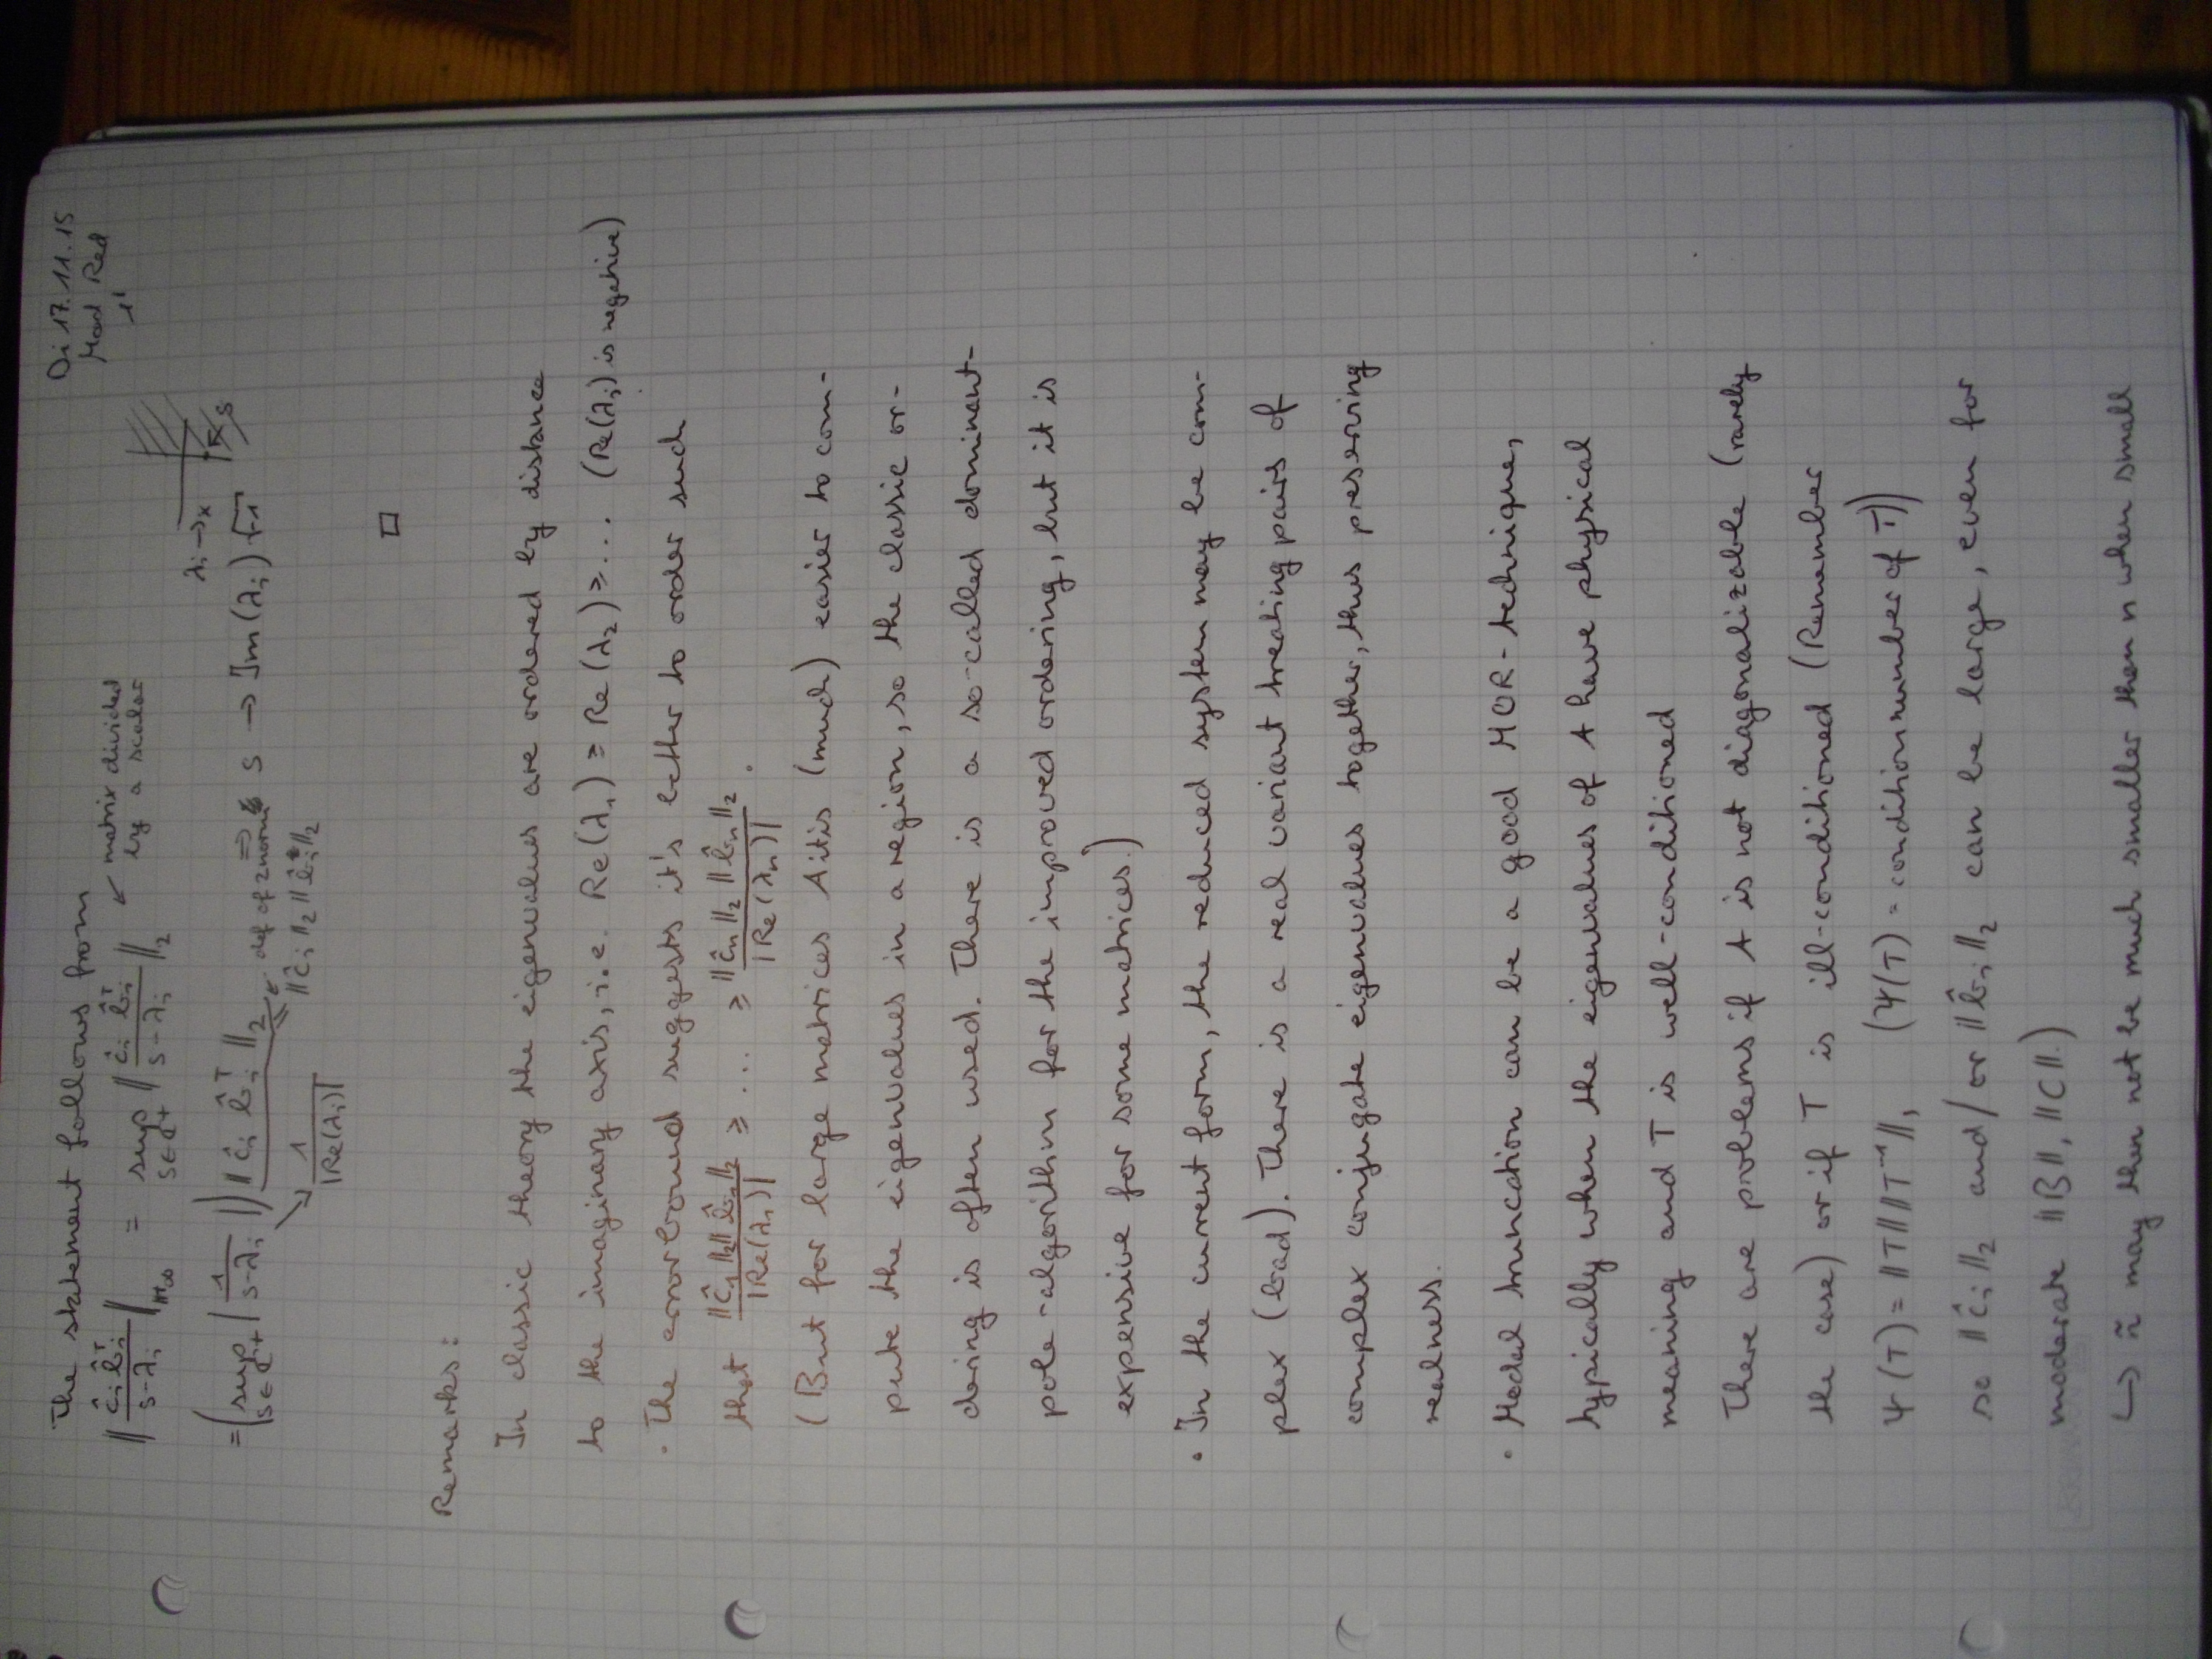 Di 17.11.15
Mod Red
1'
The statement follows from
‖ĉᵢ b̂ᵢᵀ / (s-λᵢ)‖_H∞ = sup_{s∈ℂ+} ‖ĉᵢ b̂ᵢᵀ / (s-λᵢ)‖₂ ↙ matrix divided
by a scalar
λᵢ → x
s
= (sup_{s∈ℂ+} |1/(s-λᵢ)|) ‖ĉᵢ b̂ᵢᵀ‖₂ ← def of 2norm ⇒ s → Im(λᵢ)√-1
‖ĉᵢ‖₂ ‖b̂ᵢ*‖₂
↘ 1/|Re(λᵢ)|
□
Remarks:
In classic theory the eigenvalues are ordered by distance
to the imaginary axis, i.e. Re(λ₁) ≥ Re(λ₂) ≥ ... (Re(λᵢ) is negative)
· The error bound suggests it's better to order such
that ‖ĉ₁‖₂‖b̂₁‖₂ / |Re(λ₁)| ≥ ... ≥ ‖ĉₙ‖₂‖b̂ₙ‖₂ / |Re(λₙ)| .
(But for large matrices A it is (much) easier to com-
pute the eigenvalues in a region, so the classic or-
dering is often used. There is a so-called dominant-
pole-algorithm for the improved ordering, but it is
expensive for some matrices.)
· In the current form, the reduced system may be com-
plex (bad). There is a real variant treating pairs of
complex conjugate eigenvalues together, thus preserving
realness.
· Modal truncation can be a good MOR-technique,
typically when the eigenvalues of A have physical
meaning and T is well-conditioned
There are problems if A is not diagonalizable (rarely
the case) or if T is ill-conditioned (Remember
Ψ(T) = ‖T‖‖T⁻¹‖, (Ψ(T) = conditionnumber of T))
so ‖ĉᵢ‖₂ and/or ‖b̂ᵢ‖₂ can be large, even for
moderate ‖B‖, ‖C‖.)
↪ ñ may then not be much smaller then n when small